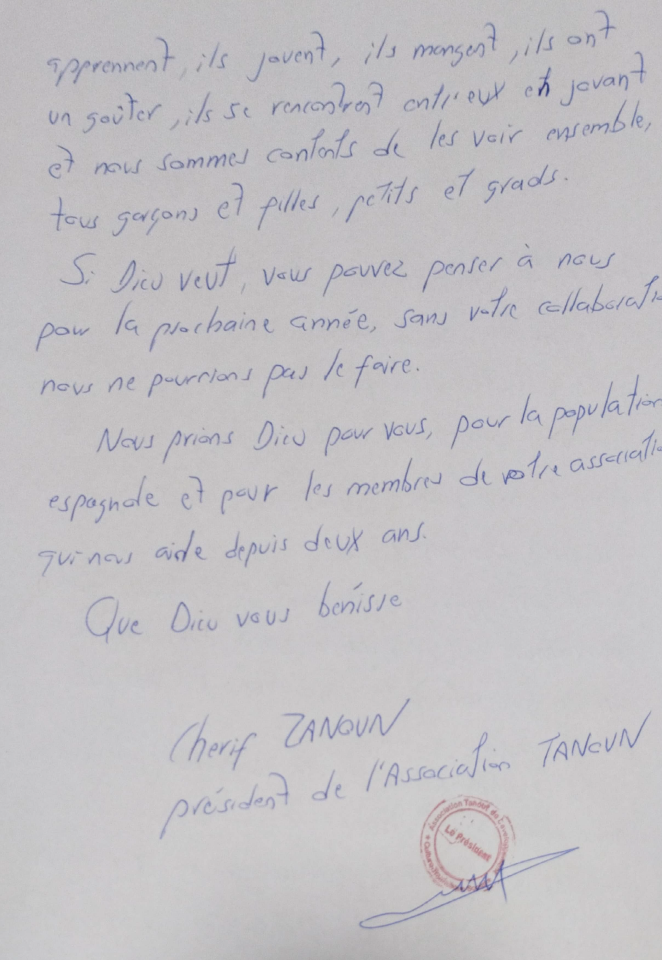 apprennent, ils jouent, ils mangent, ils ont
un goûter, ils se rencontrent entr'eux en jouant
et nous sommes contents de les voir ensemble,
tous garçons et filles, petits et grads.
Si Dieu veut, vous pouvez penser à nous
pour la prochaine année, sans votre collaborati
nous ne pourrions pas le faire.
Nous prions Dieu pour vous, pour la population
espagnole et pour les membres de votre associati
qui nous aide depuis deux ans.
Que Dieu vous benisse
Cherif ZANOUN
président de l'Association TANOUN
Association
Le Président